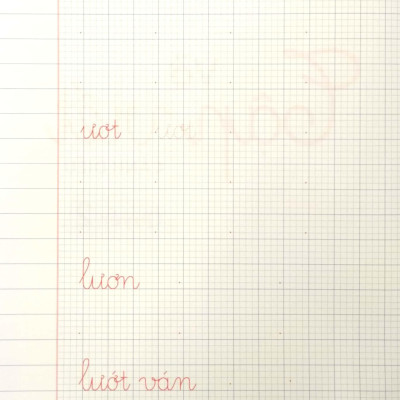 ươt
lươn
lướt ván